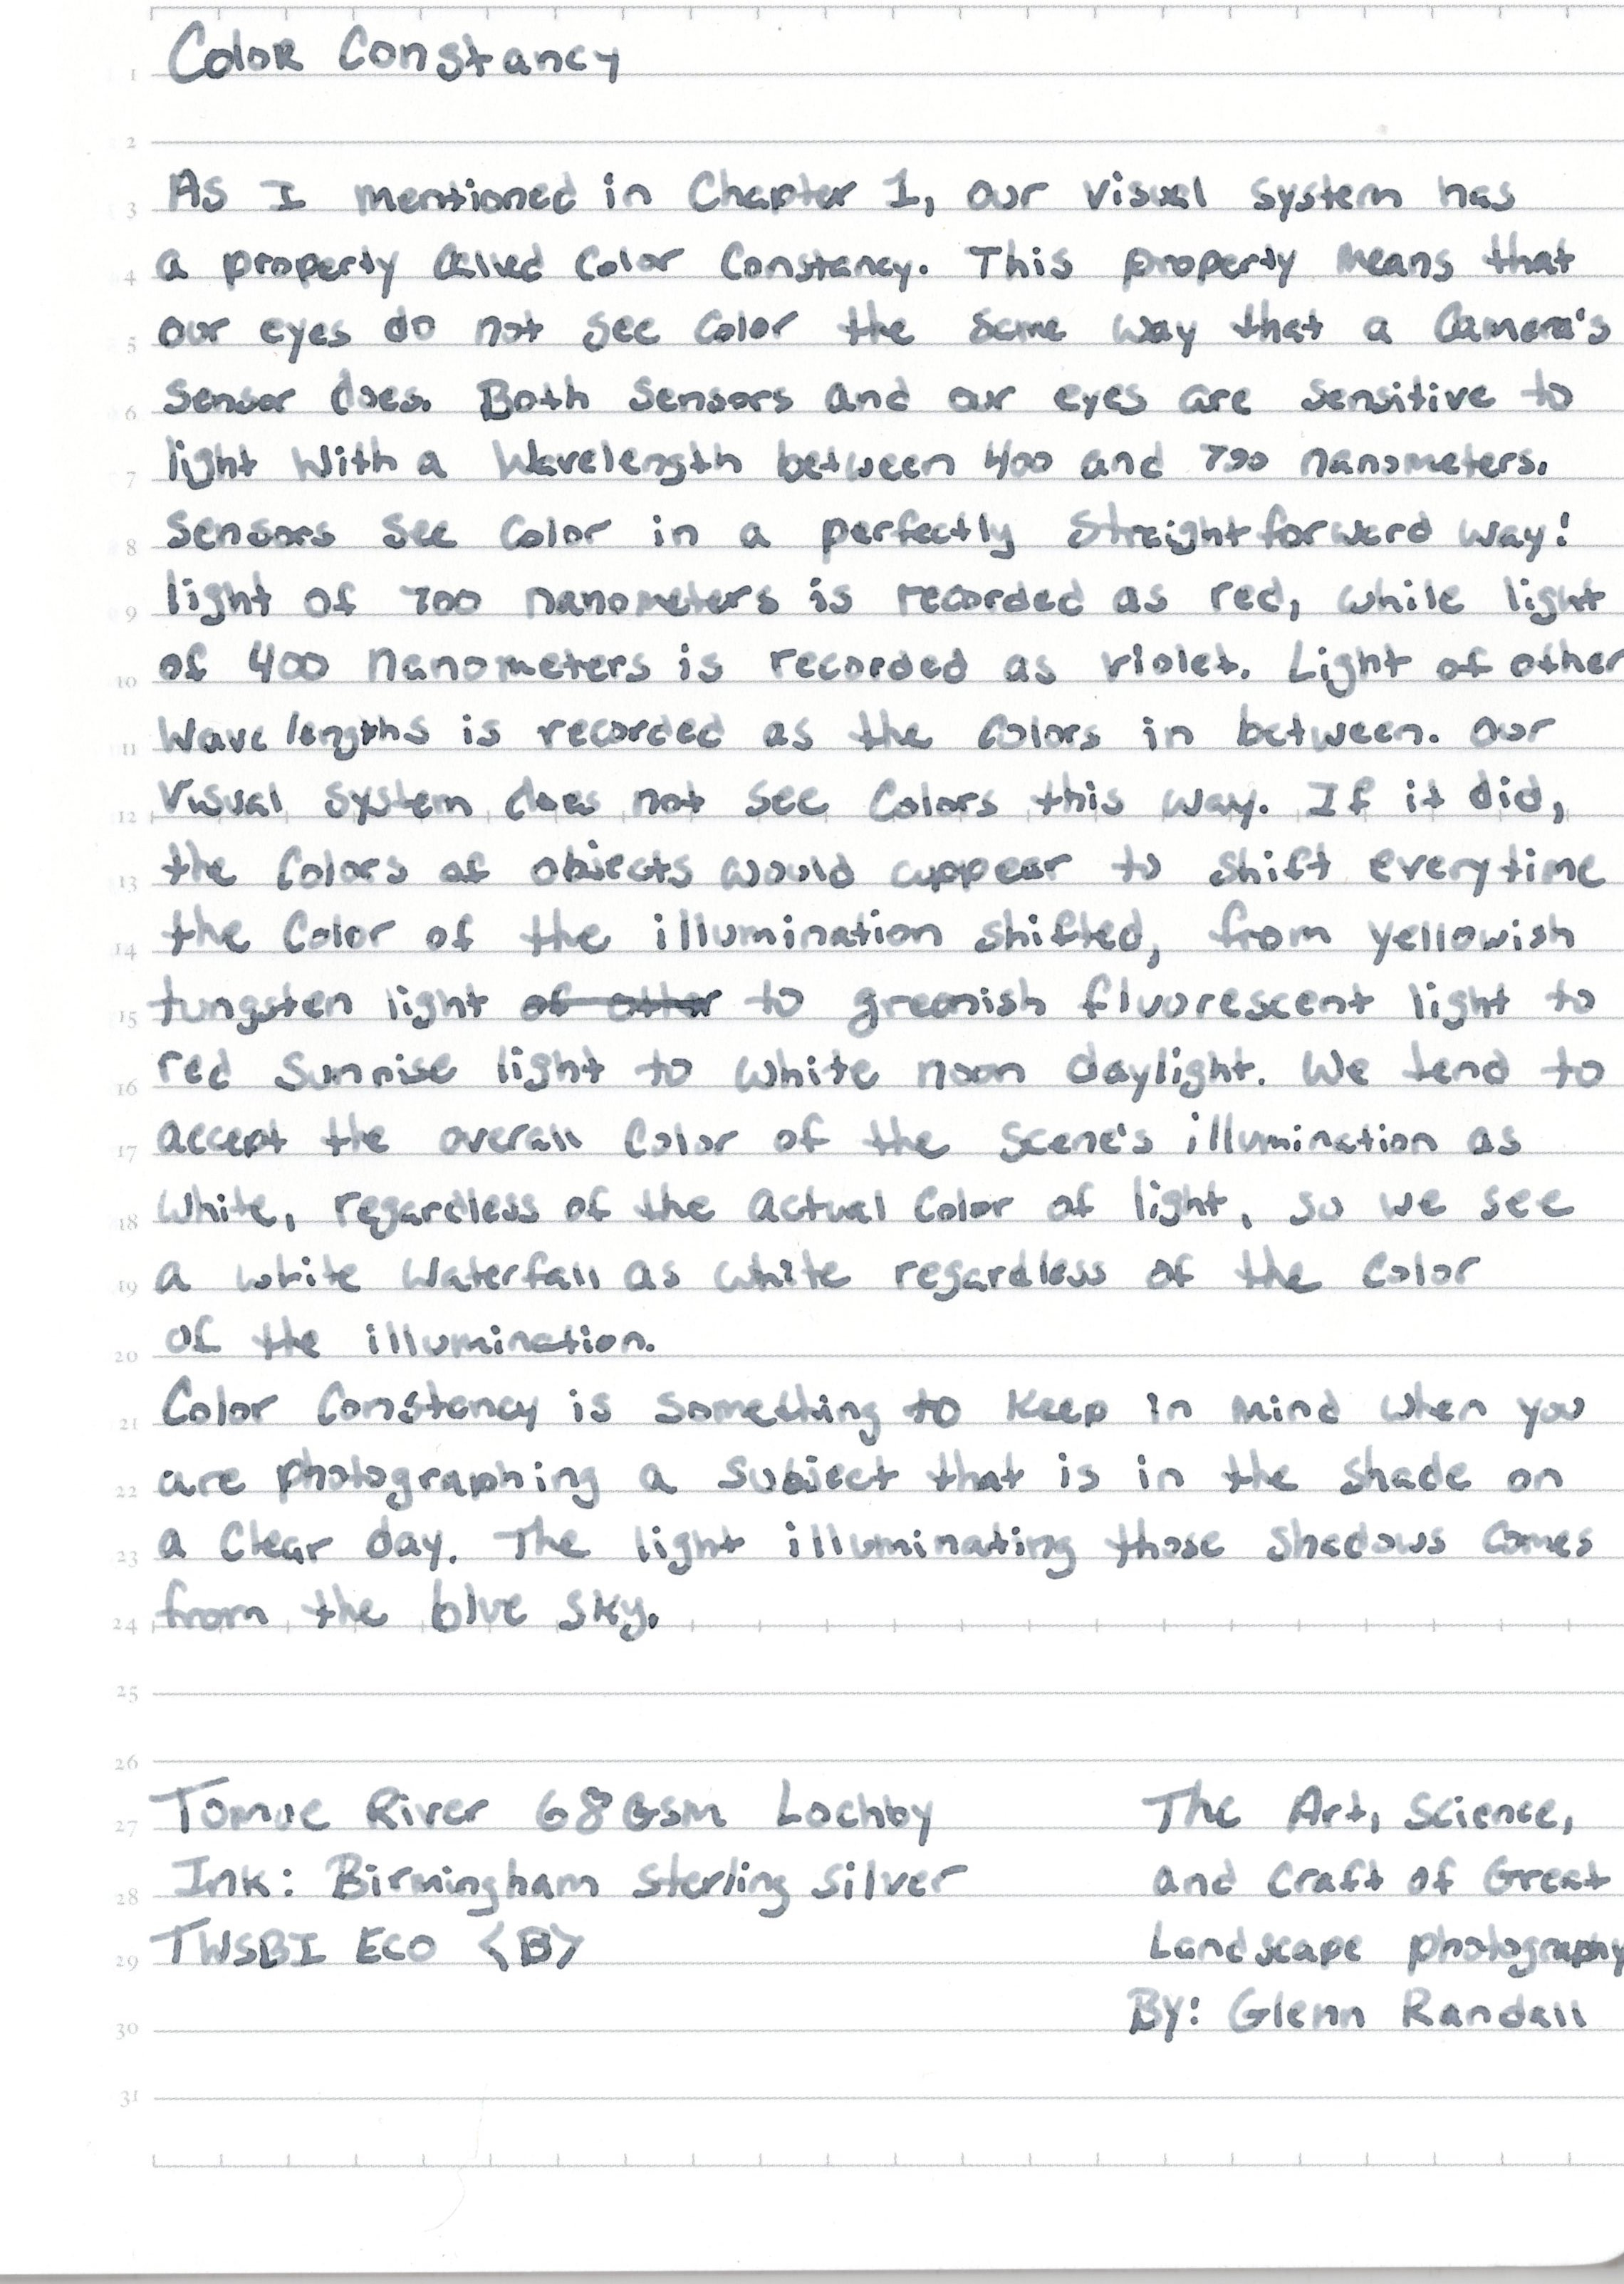 Color Constancy
As I mentioned in Chapter 1, our visual system has
a property called Color Constancy. This property means that
our eyes do not see color the same way that a Camera's
sensor does. Both sensors and our eyes are sensitive to
light with a wavelength between 400 and 700 nanometers.
Sensors see color in a perfectly straightforward way:
light of 700 nanometers is recorded as red, while light
of 400 Nanometers is recorded as violet. Light of other
Wavelengths is recorded as the Colors in between. Our
Visual system does not see Colors this way. If it did,
the Colors of objects would appear to shift everytime
the Color of the illumination shifted, from yellowish
tungsten light of other to greenish fluorescent light to
red Sunrise light to White noon daylight. We tend to
accept the overall Color of the Scene's illumination as
White, regardless of the Actual Color of light, so we see
a white Waterfall as white regardless of the Color
of the illumination.
Color Constancy is something to Keep in Mind when you
are photographing a subject that is in the shade on
a Clear day. The light illuminating those shadows Comes
from the blue sky.
Tomoe River 68 Gsm Lochby
Ink: Birmingham Sterling Silver
TWSBI Eco <B>
The Art, Science,
and Craft of Great
Landscape photography
By: Glenn Randall
1
2
3
4
5
6
7
8
9
10
11
12
13
14
15
16
17
18
19
20
21
22
23
24
25
26
27
28
29
30
31